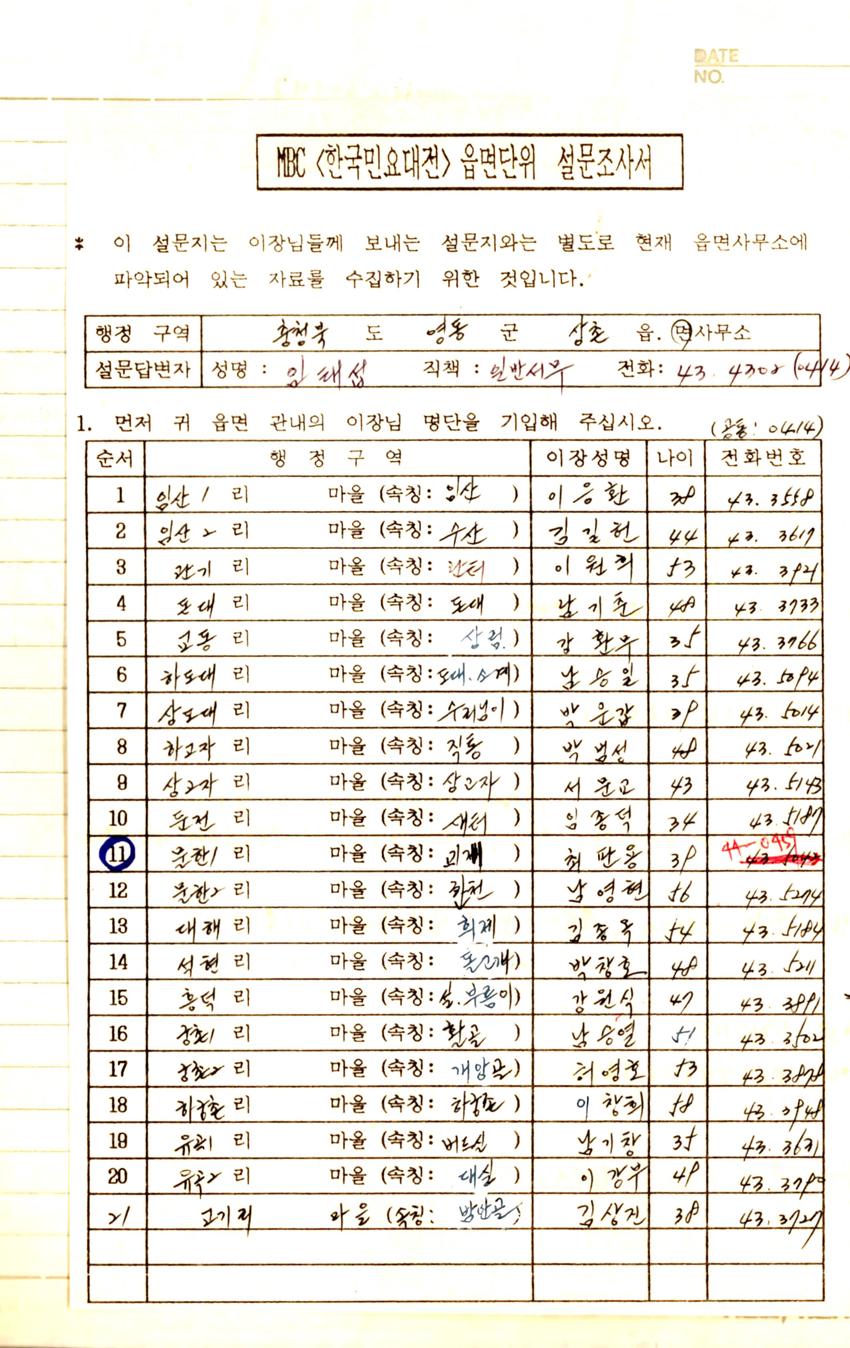 DATE
NO.
MBC <한국민요대전> 읍면단위 설문조사서
* 이 설문지는 이장님들께 보내는 설문지와는 별도로 현재 읍면사무소에
파악되어 있는 자료를 수집하기 위한 것입니다.
행정 구역 충청북 도 영동 군 상촌 읍.면사무소
설문답변자 성명 : 임태섭 직책 : 일반서무 전화: 43.4302 (0414)
1. 먼저 귀 읍면 관내의 이장님 명단을 기입해 주십시오. (공통: 0414)
순서 행 정 구 역 이장성명 나이 전화번호
1 임산1 리 마을 (속칭: 임산 ) 이응환 38 43.3558
2 임산2 리 마을 (속칭: 수산 ) 김길현 44 43.3617
3 관기 리 마을 (속칭: 관터 ) 이원희 53 43.3921
4 돈대 리 마을 (속칭: 돈대 ) 남기춘 48 43.3733
5 교동 리 마을 (속칭: ) 강환무 35 43.3766
6 하도대 리 마을 (속칭: ) 남승일 35 43.5094
7 상도대 리 마을 (속칭: ) 박운갑 39 43.5014
8 하고자 리 마을 (속칭: 직동 ) 박범성 48 43.5021
9 상고자 리 마을 (속칭: 상고자 ) 서운고 43 43.5143
10 둔전 리 마을 (속칭: 새터 ) 임종덕 34 43.5187
11 물한1 리 마을 (속칭: ) 최판용 39 44-0459
12 물한2 리 마을 (속칭: 한천 ) 남영현 56 43.5274
13 대해 리 마을 (속칭: ) 김종옥 54 43.5184
14 석현 리 마을 (속칭: 돌고개) 박창호 48 43.5211
15 흥덕 리 마을 (속칭: ) 강원식 47 43.3891
16 궁촌1 리 마을 (속칭: 활골 ) 남승열 51 43.3502
17 궁촌2 리 마을 (속칭: ) 허영호 53 43.3878
18 하궁촌 리 마을 (속칭: 하궁촌 ) 이창희 58 43.3948
19 유곡1 리 마을 (속칭: 버드실 ) 남기창 35 43.3631
20 유곡2 리 마을 (속칭: 대실 ) 이강부 49 43.3790
21 고기리 마을 (속칭: ) 김상진 38 43.3727